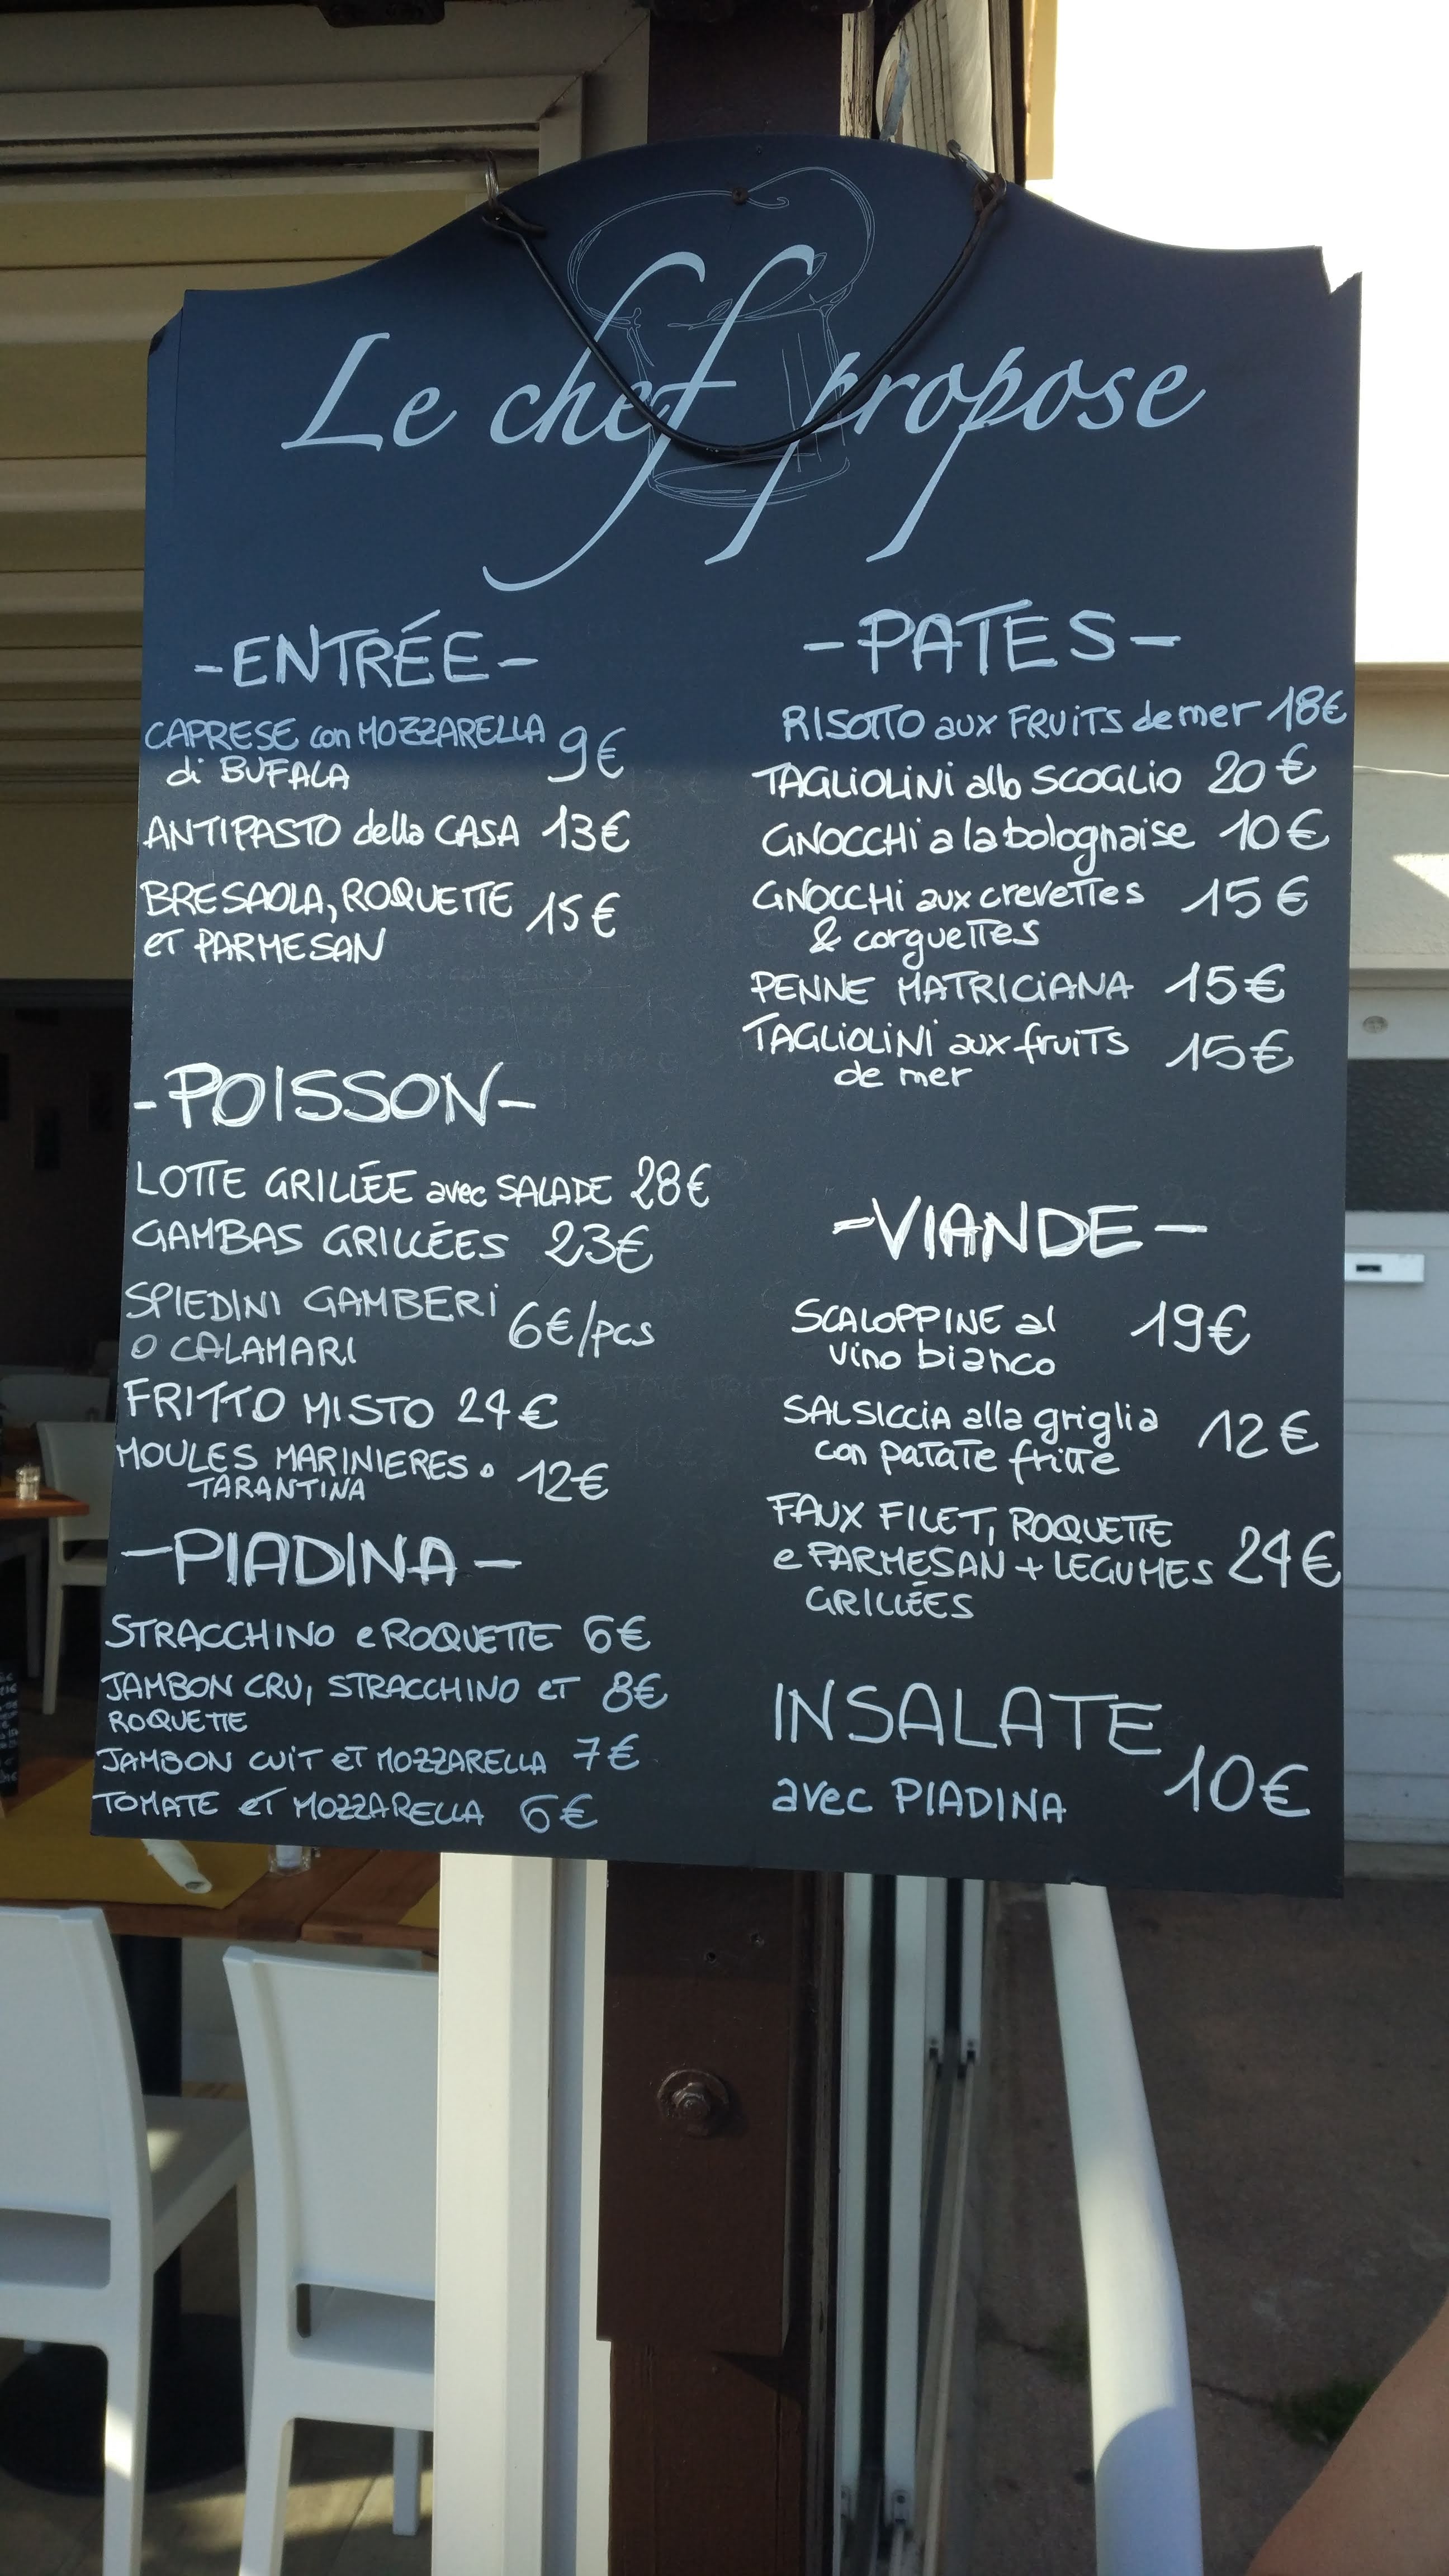 Le chef propose
-ENTRÉE-
CAPRESE con MOZZARELLA 9€
di BUFALA
ANTIPASTO della CASA 13€
BRESAOLA, ROQUETTE 15€
et PARMESAN
-POISSON-
LOTTE GRILLÉE avec SALADE 28€
GAMBAS GRILLÉES 23€
SPIEDINI GAMBERI 6€/pcs
O CALAMARI
FRITTO MISTO 24€
MOULES MARINIERES o 12€
TARANTINA
-PIADINA-
STRACCHINO e ROQUETTE 6€
JAMBON CRU, STRACCHINO ET 8€
ROQUETTE
JAMBON CUIT ET MOZZARELLA 7€
TOMATE ET MOZZARELLA 6€
-PATES-
RISOTTO aux FRUITS de mer 18€
TAGLIOLINI allo SCOGLIO 20€
GNOCCHI a la bolognaise 10€
GNOCCHI aux crevettes 15€
& corguettes
PENNE MATRICIANA 15€
TAGLIOLINI aux fruits 15€
de mer
-VIANDE-
SCALOPPINE al 19€
vino bianco
SALSICCIA alla griglia 12€
con patate fritte
FAUX FILET, ROQUETTE
e PARMESAN + LEGUMES 24€
GRILLÉES
INSALATE
avec PIADINA 10€